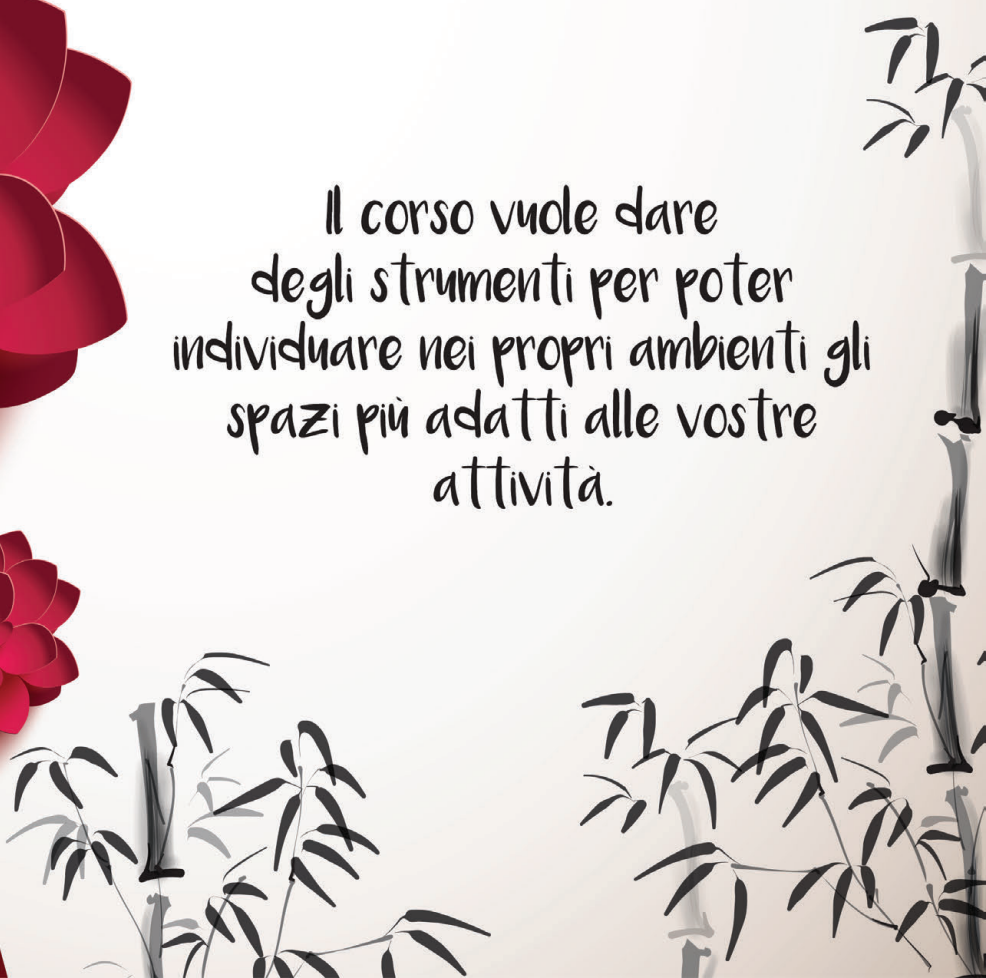 Il corso vuole dare
degli strumenti per poter
individuare nei propri ambienti gli
spazi più adatti alle vostre
attività.